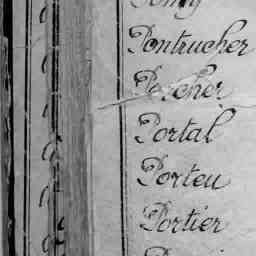 Pontrucher
Porcher
Portal
Porteu
Portier